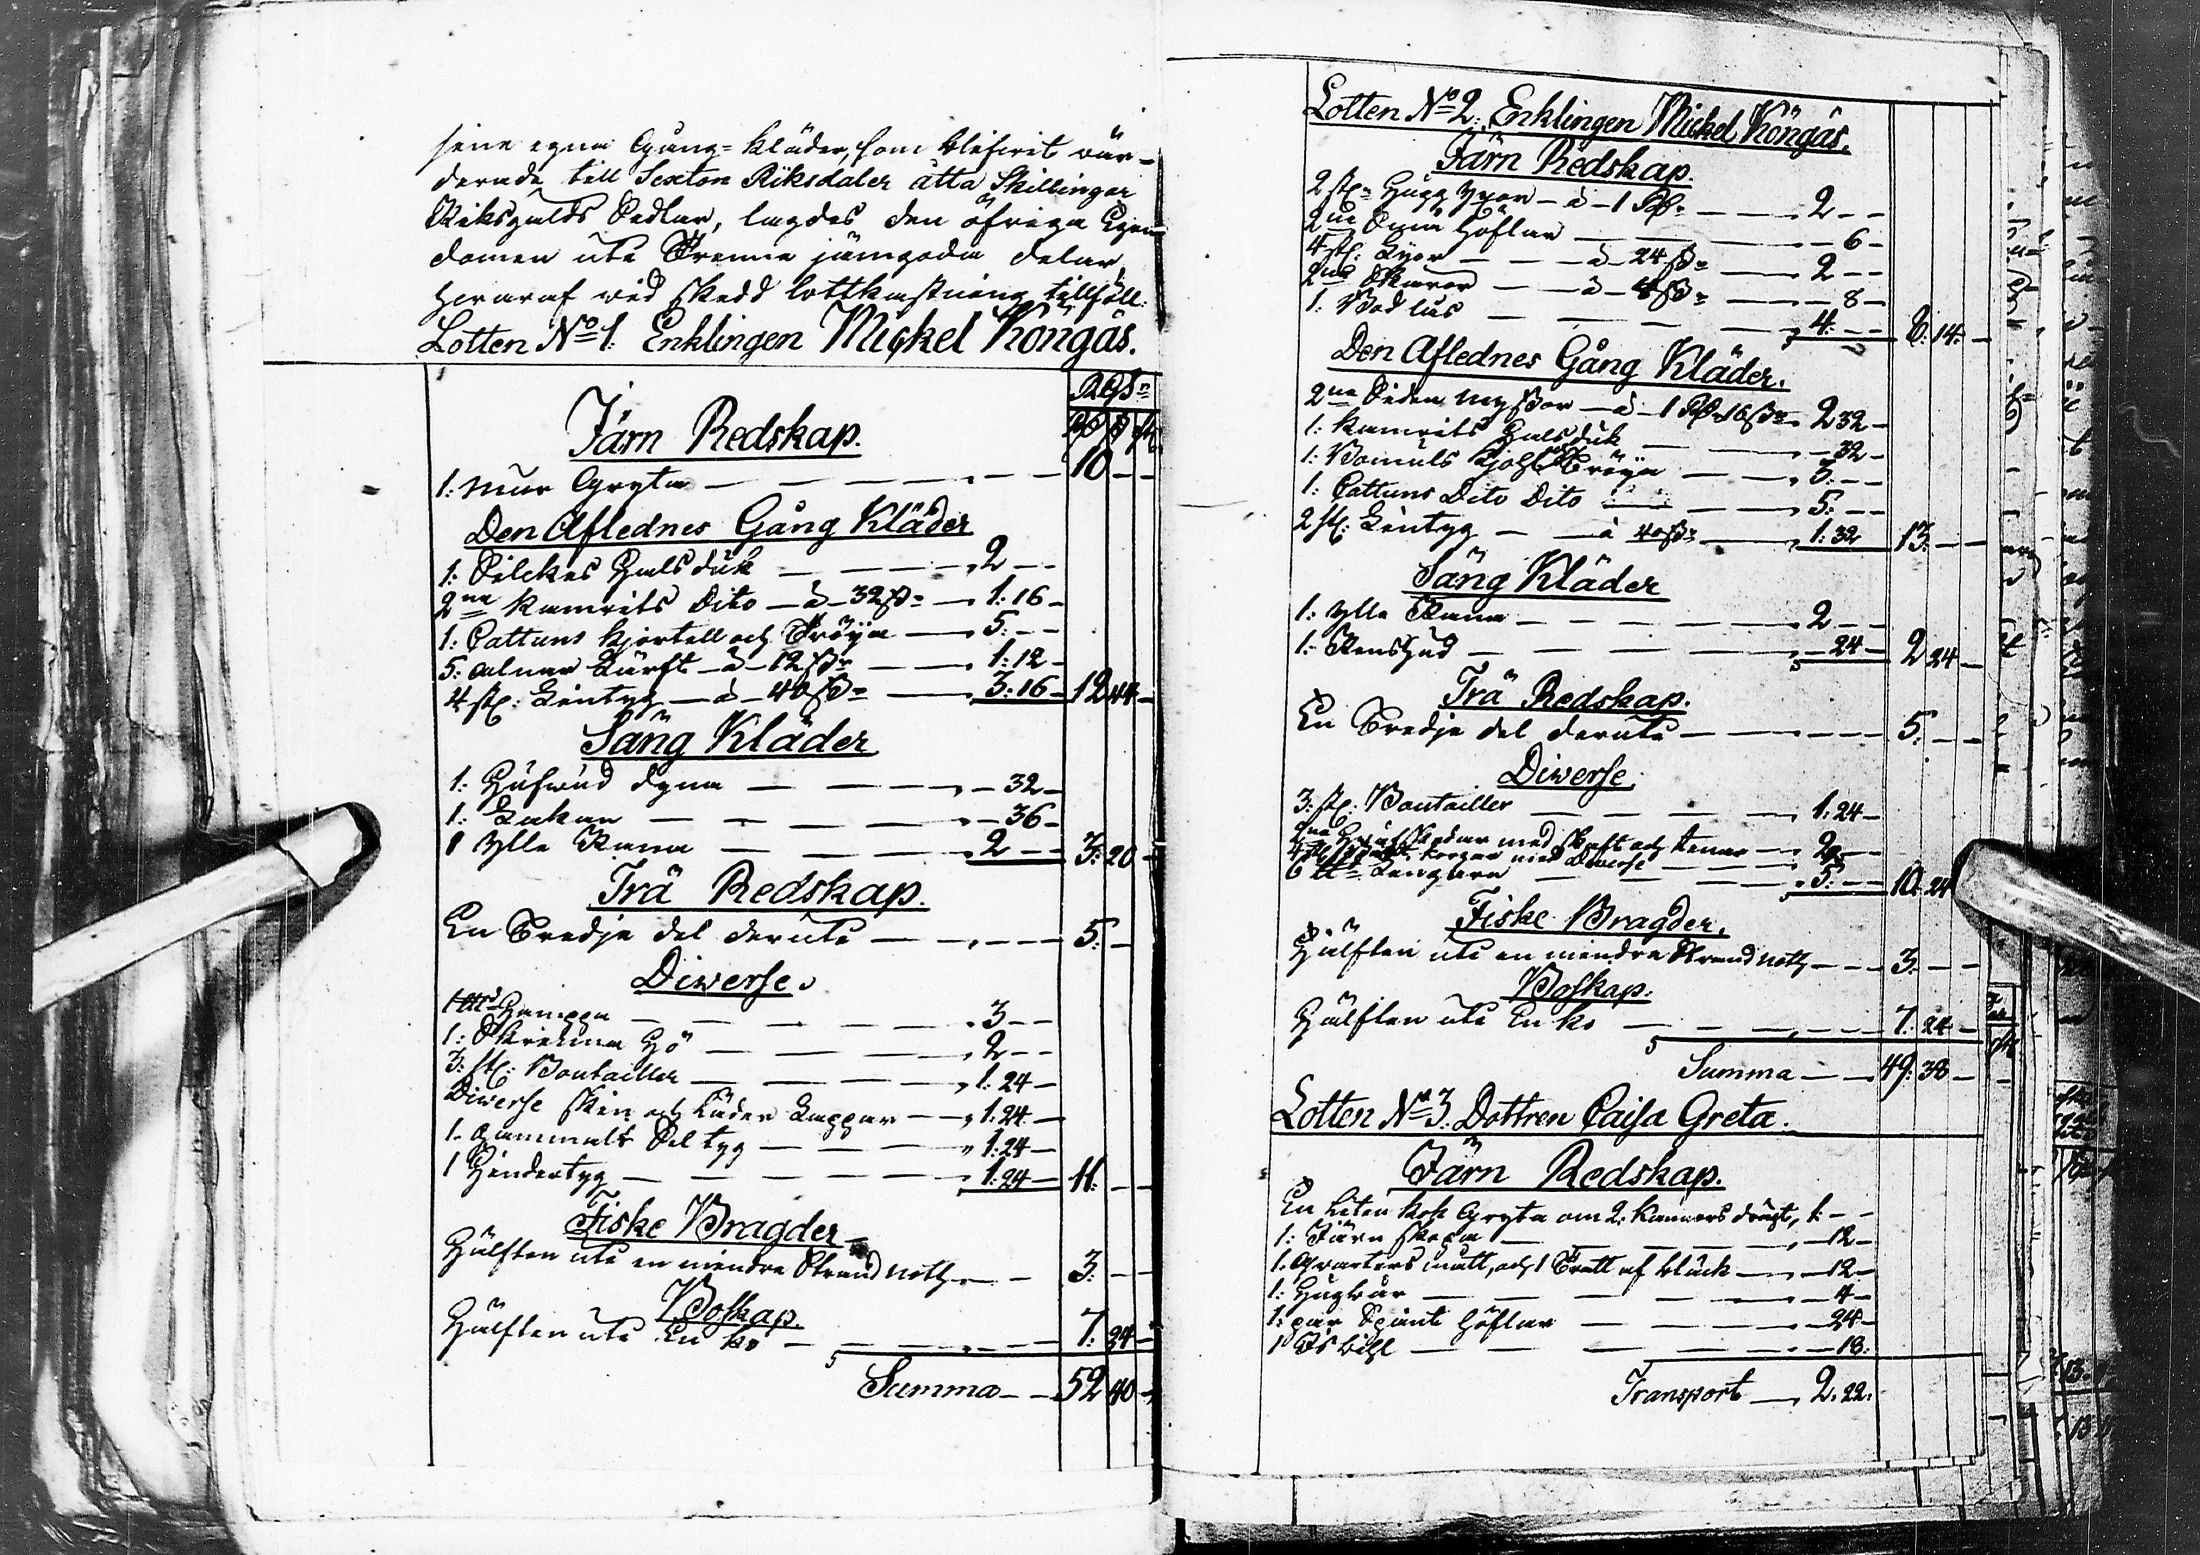 sine egna Gång-Kläder, som blifwit wär-
derade till Sexton Riksdaler åtta Skillingar
Riksgälds Sedlar, lagdes den öfriga Egen
domen uti Trenne jämgoda delar,
hwaraf wid skedd lottkastning tillföll:
Lotten No 1. Enklingen Mickel Köngäs.
Rgs
Järn Redskap.
1: mur Gryta — 10 — —
Den Aflednes Gång Kläder
1: Silckes Halsduk — 2 — —
2ne Kamrits Dito — à 32 ß — 1: 16 —
1: Cattuns Kjortell och Tröija — 5: — —
5: alnar Lärft — à 12 ß — 1: 12 —
4 st: Lintyg — à 40 ß — 3: 16 — 12 44 —
Säng Kläder
1: Hufwud dyna — 32 —
1: Lakan — 36 —
1 Ylle Rana — 2 — — 3: 20 —
Trä Redskap.
En Tredje del deruti — 5: —
Diwerse.
Hampa — 3 — —
1: Skrinna Hö — 2 — —
3: st: Boutailler — 1: 24 —
Diwerse skin och Läder Lappar — 1: 24 —
1. Gammalt Seltyg — 1: 24 —
1 — 1: 24 — 11: — —
Fiske Bragder
Hälften uti en mindre Strand noth — 3: — —
Boskap.
Hälften uti En ko — 7: 24 —
Summa — 52 40 —
Lotten No 2. Enklingen Mickel Köngäs.
Järn Redskap.
2 st: Hugg Yxor — à 1 Rd — 2 — —
2ne Höflar — 6 —
4 st: Lyor — à 24 ß — 2 — —
2ne Skäror — à 4 ß — 8 —
1: — 4: — — 8: 14 —
Den Aflednes Gång Kläder.
2ne Siden myssor — à 1 Rd 16 ß — 2 32 —
1: Kamrits Halsduk — 32 —
1: Bomuls Tröija — 3: — —
1: Cattuns Dito Dito — 5: — —
2 st: Lintyg — à 40 ß — 1: 32 13: — —
Säng Kläder
1: Ylle Rana — 2 — —
1: Renshud — 24 — 2 24 —
Trä Redskap.
En Tredje del deruti — 5: — —
Diwerse.
3: st: Boutailler — 1: 24 —
2ne med skaft och — 2 — —
korgar med Diverse —
6 — 5: — — 10: 24
Fiske Bragder.
Hälften uti en mindre Strand noth — 3: — —
Boskap.
Hälften uti En ko — 7: 24 —
Summa — 49: 38 —
Lotten No 3. Dottren Caisa Greta.
Järn Redskap.
En liten kok Gryta om 2: kannors drägt, 1: — —
1: Järn — 12 —
1. Qwarters mått, och 1 Tratt af bläck — 12 —
1: — 4 —
1: par Spånt Höflar — 24 —
1 Is bihl — 18:
Transport — 2: 22: